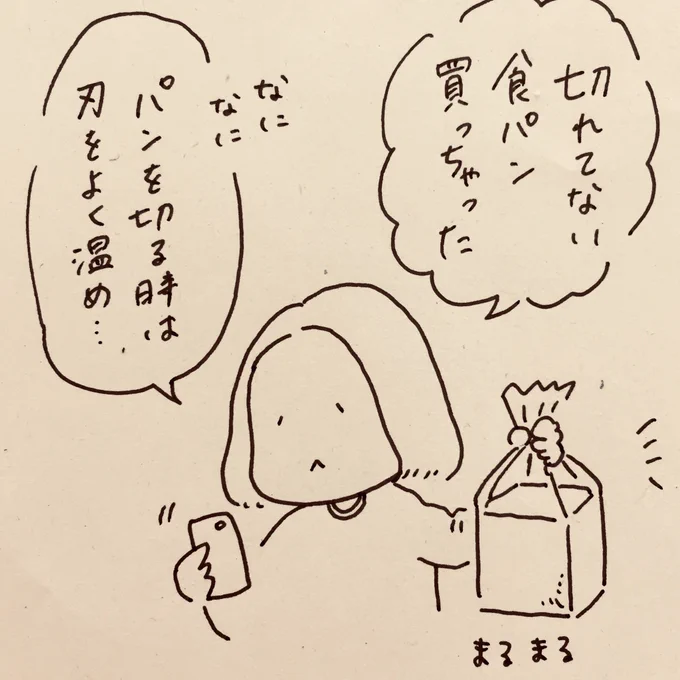 切れてない
食パン
買っちゃった
なに
なに
パンを切る時は
刃をよく温め…
まるまる